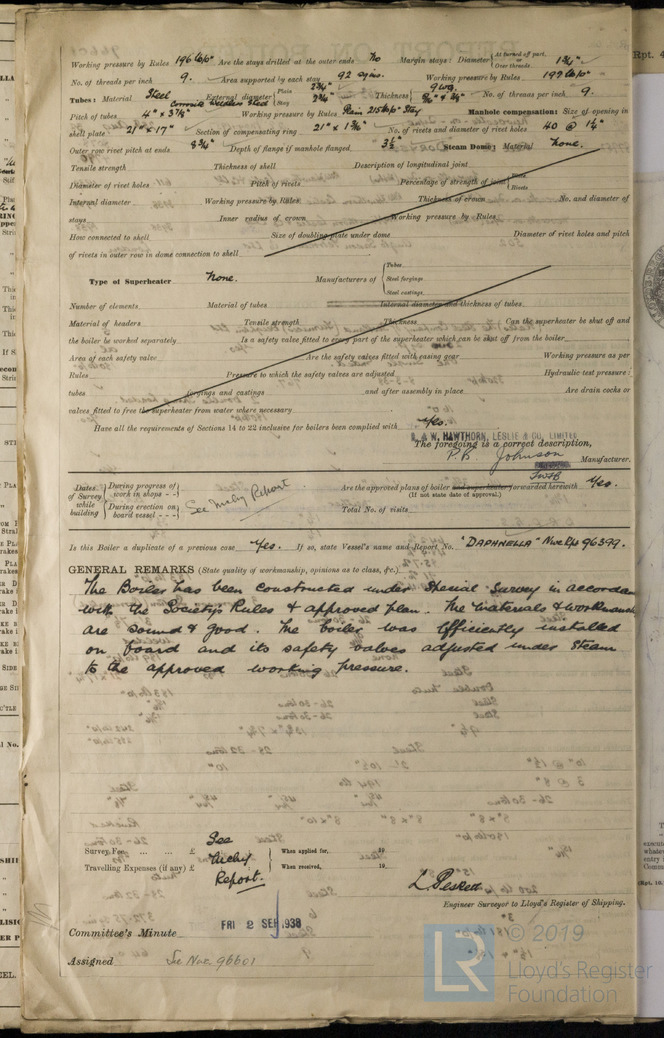 Working pressure by Rules 196 lb/□" Are the stays drilled at the outer ends No Margin stays: Diameter { At turned off part, or Over threads 1¾"
No. of threads per inch 9. Area supported by each stay 92 sq ins. Working pressure by Rules 199 lb/□"
Tubes: Material Steel External diameter { Plain 2¾" Stay 2¾" Thickness { 9 WG No. of threads per inch 9.
Pitch of tubes 4" x 3⅞" Working pressure by Rules Plain 215 lb/□" Stay Manhole compensation: Size of opening in
shell plate 21" x 17" Section of compensating ring 21" x 1 No. of rivets and diameter of rivet holes 40 @ 1¼"
Outer row rivet pitch at ends 8¾" Depth of flange if manhole flanged 3½" Steam Dome: Material None.
Tensile strength Thickness of shell Description of longitudinal joint
Diameter of rivet holes Pitch of rivets Percentage of strength of joint { Plate Rivets
Internal diameter Working pressure by Rules Thickness of crown No. and diameter of
stays Inner radius of crown Working pressure by Rules
How connected to shell Size of doubling plate under dome Diameter of rivet holes and pitch
of rivets in outer row in dome connection to shell
Type of Superheater None. Manufacturers of { Tubes Steel forgings Steel castings
Number of elements Material of tubes Internal diameter and thickness of tubes
Material of headers Tensile strength Thickness Can the superheater be shut off and
the boiler be worked separately Is a safety valve fitted to every part of the superheater which can be shut off from the boiler
Area of each safety valve Are the safety valves fitted with easing gear Working pressure as per
Rules Pressure to which the safety valves are adjusted Hydraulic test pressure:
tubes forgings and castings and after assembly in place Are drain cocks or
valves fitted to free the superheater from water where necessary
Have all the requirements of Sections 14 to 22 inclusive for boilers been complied with Yes.
R. & W. HAWTHORN, LESLIE & CO., LIMITED
The foregoing is a correct description,
P.B. Johnson Manufacturer.
Dates of Survey while building { During progress of work in shops - - During erection on board vessel - - - See Mchy Report
Are the approved plans of boiler and superheater forwarded herewith Yes.
(If not state date of approval.)
Total No. of visits
Is this Boiler a duplicate of a previous case Yes. If so, state Vessel's name and Report No. "DAPHNELLA" Nwc Rpt 96399.
GENERAL REMARKS (State quality of workmanship, opinions as to class, &c.)
The Boiler has been constructed under Special Survey in accordan
with the Society's Rules & approved plan. The Materials & workmans
are sound & good. The boiler was efficiently installed
on board and its safety valves adjusted under steam
to the approved working pressure.
Survey Fee ... ... £ See Mchy Report. When applied for, 19
Travelling Expenses (if any) £ When received, 19
L Peskett
Engineer Surveyor to Lloyd's Register of Shipping.
Committee's Minute FRI 2 SEP 1938
Assigned See Nwc 96601
© 2019
Lloyd's Register
Foundation